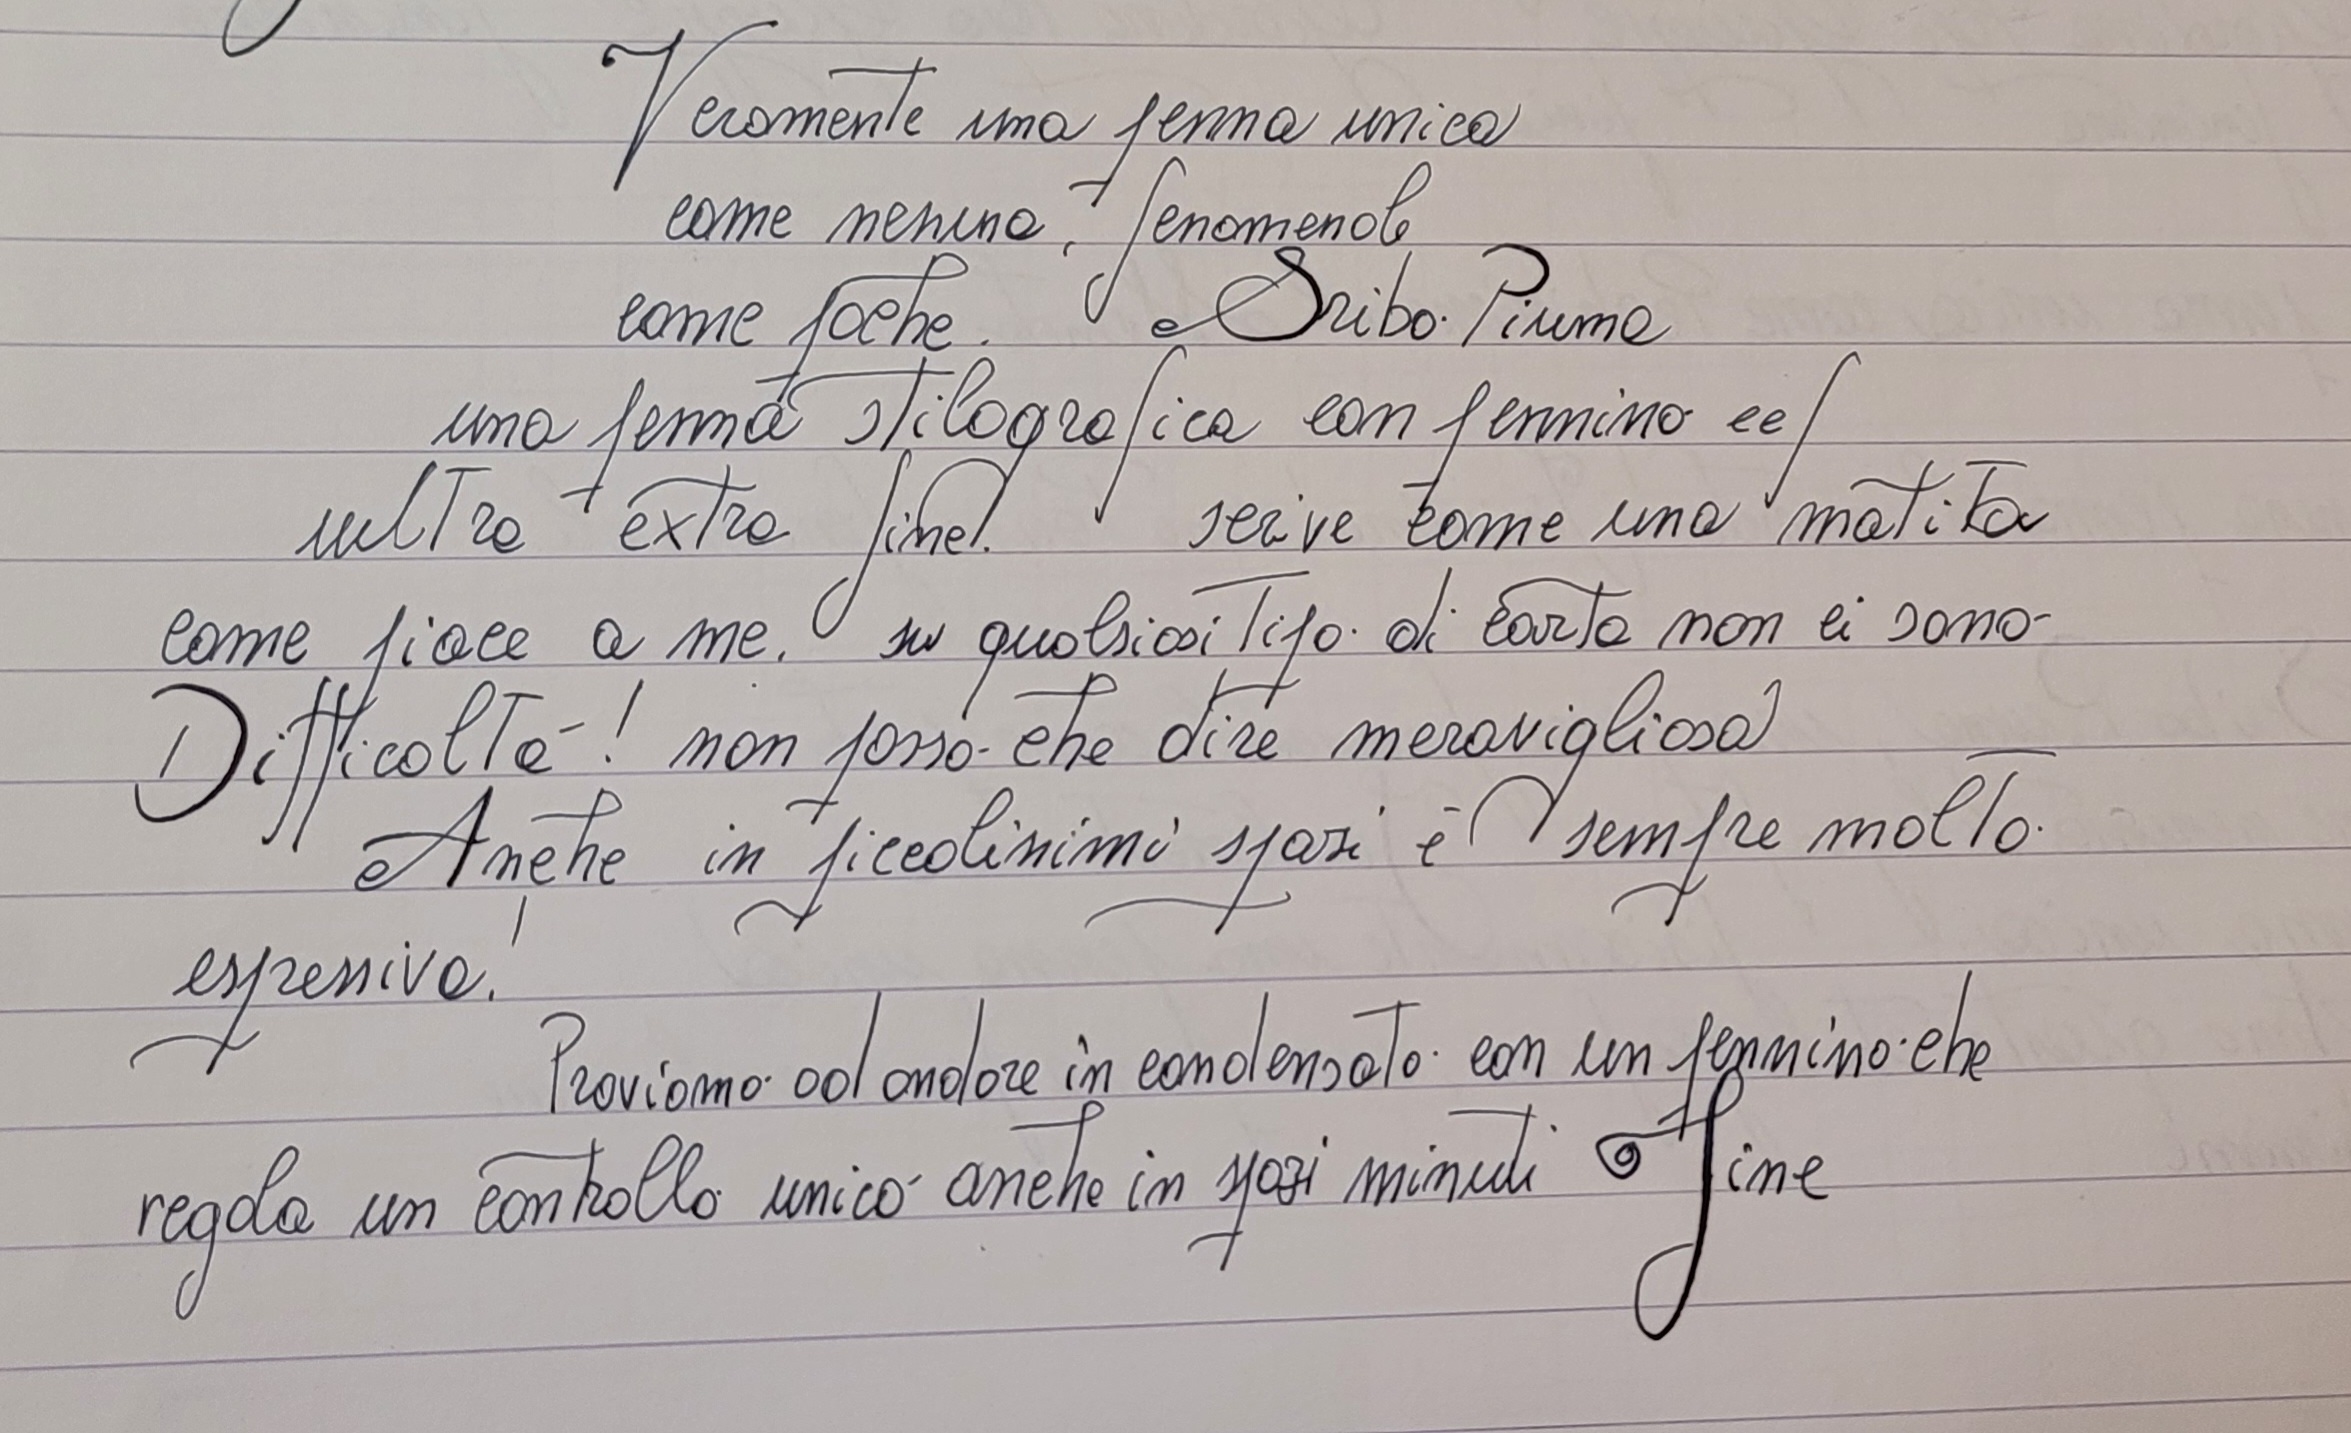 Veramente una penna unica
come nessuna, fenomenale
come poche. Scribo Piuma
una penna stilografica con pennino eef
ultra extra fine! scrive come una matita
come piace a me. su qualsiasi tipo di carta non ci sono
Difficoltà! non posso che dire meravigliosa
Anche in piccolissimi spazi è sempre molto
espressiva!
Proviamo ad andare in condensato con un pennino che
regala un controllo unico anche in spazi minuti fine